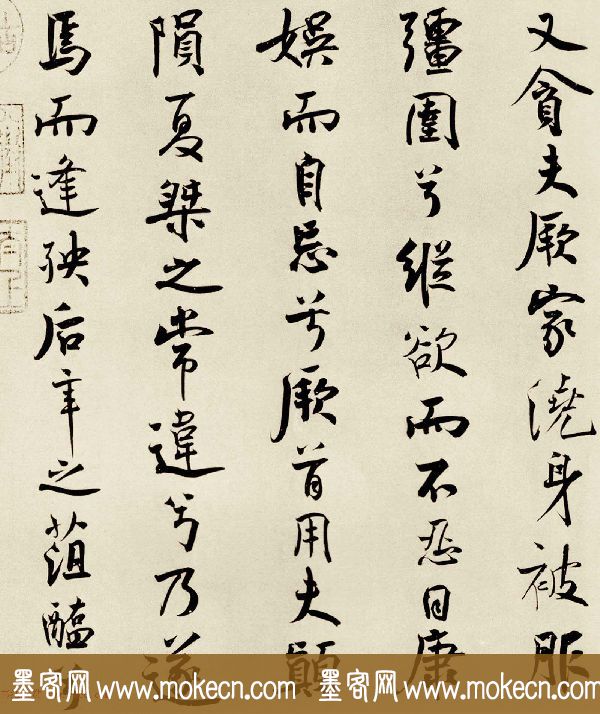 又貪夫厥家澆身被服
彊圉兮縱欲而不忍日康
娛而自忘兮厥首用夫顛
隕夏桀之常違兮乃遂
焉而逢殃后辛之菹醢兮
墨客网 www.mokecn.com 墨客网 www.mokecn.com